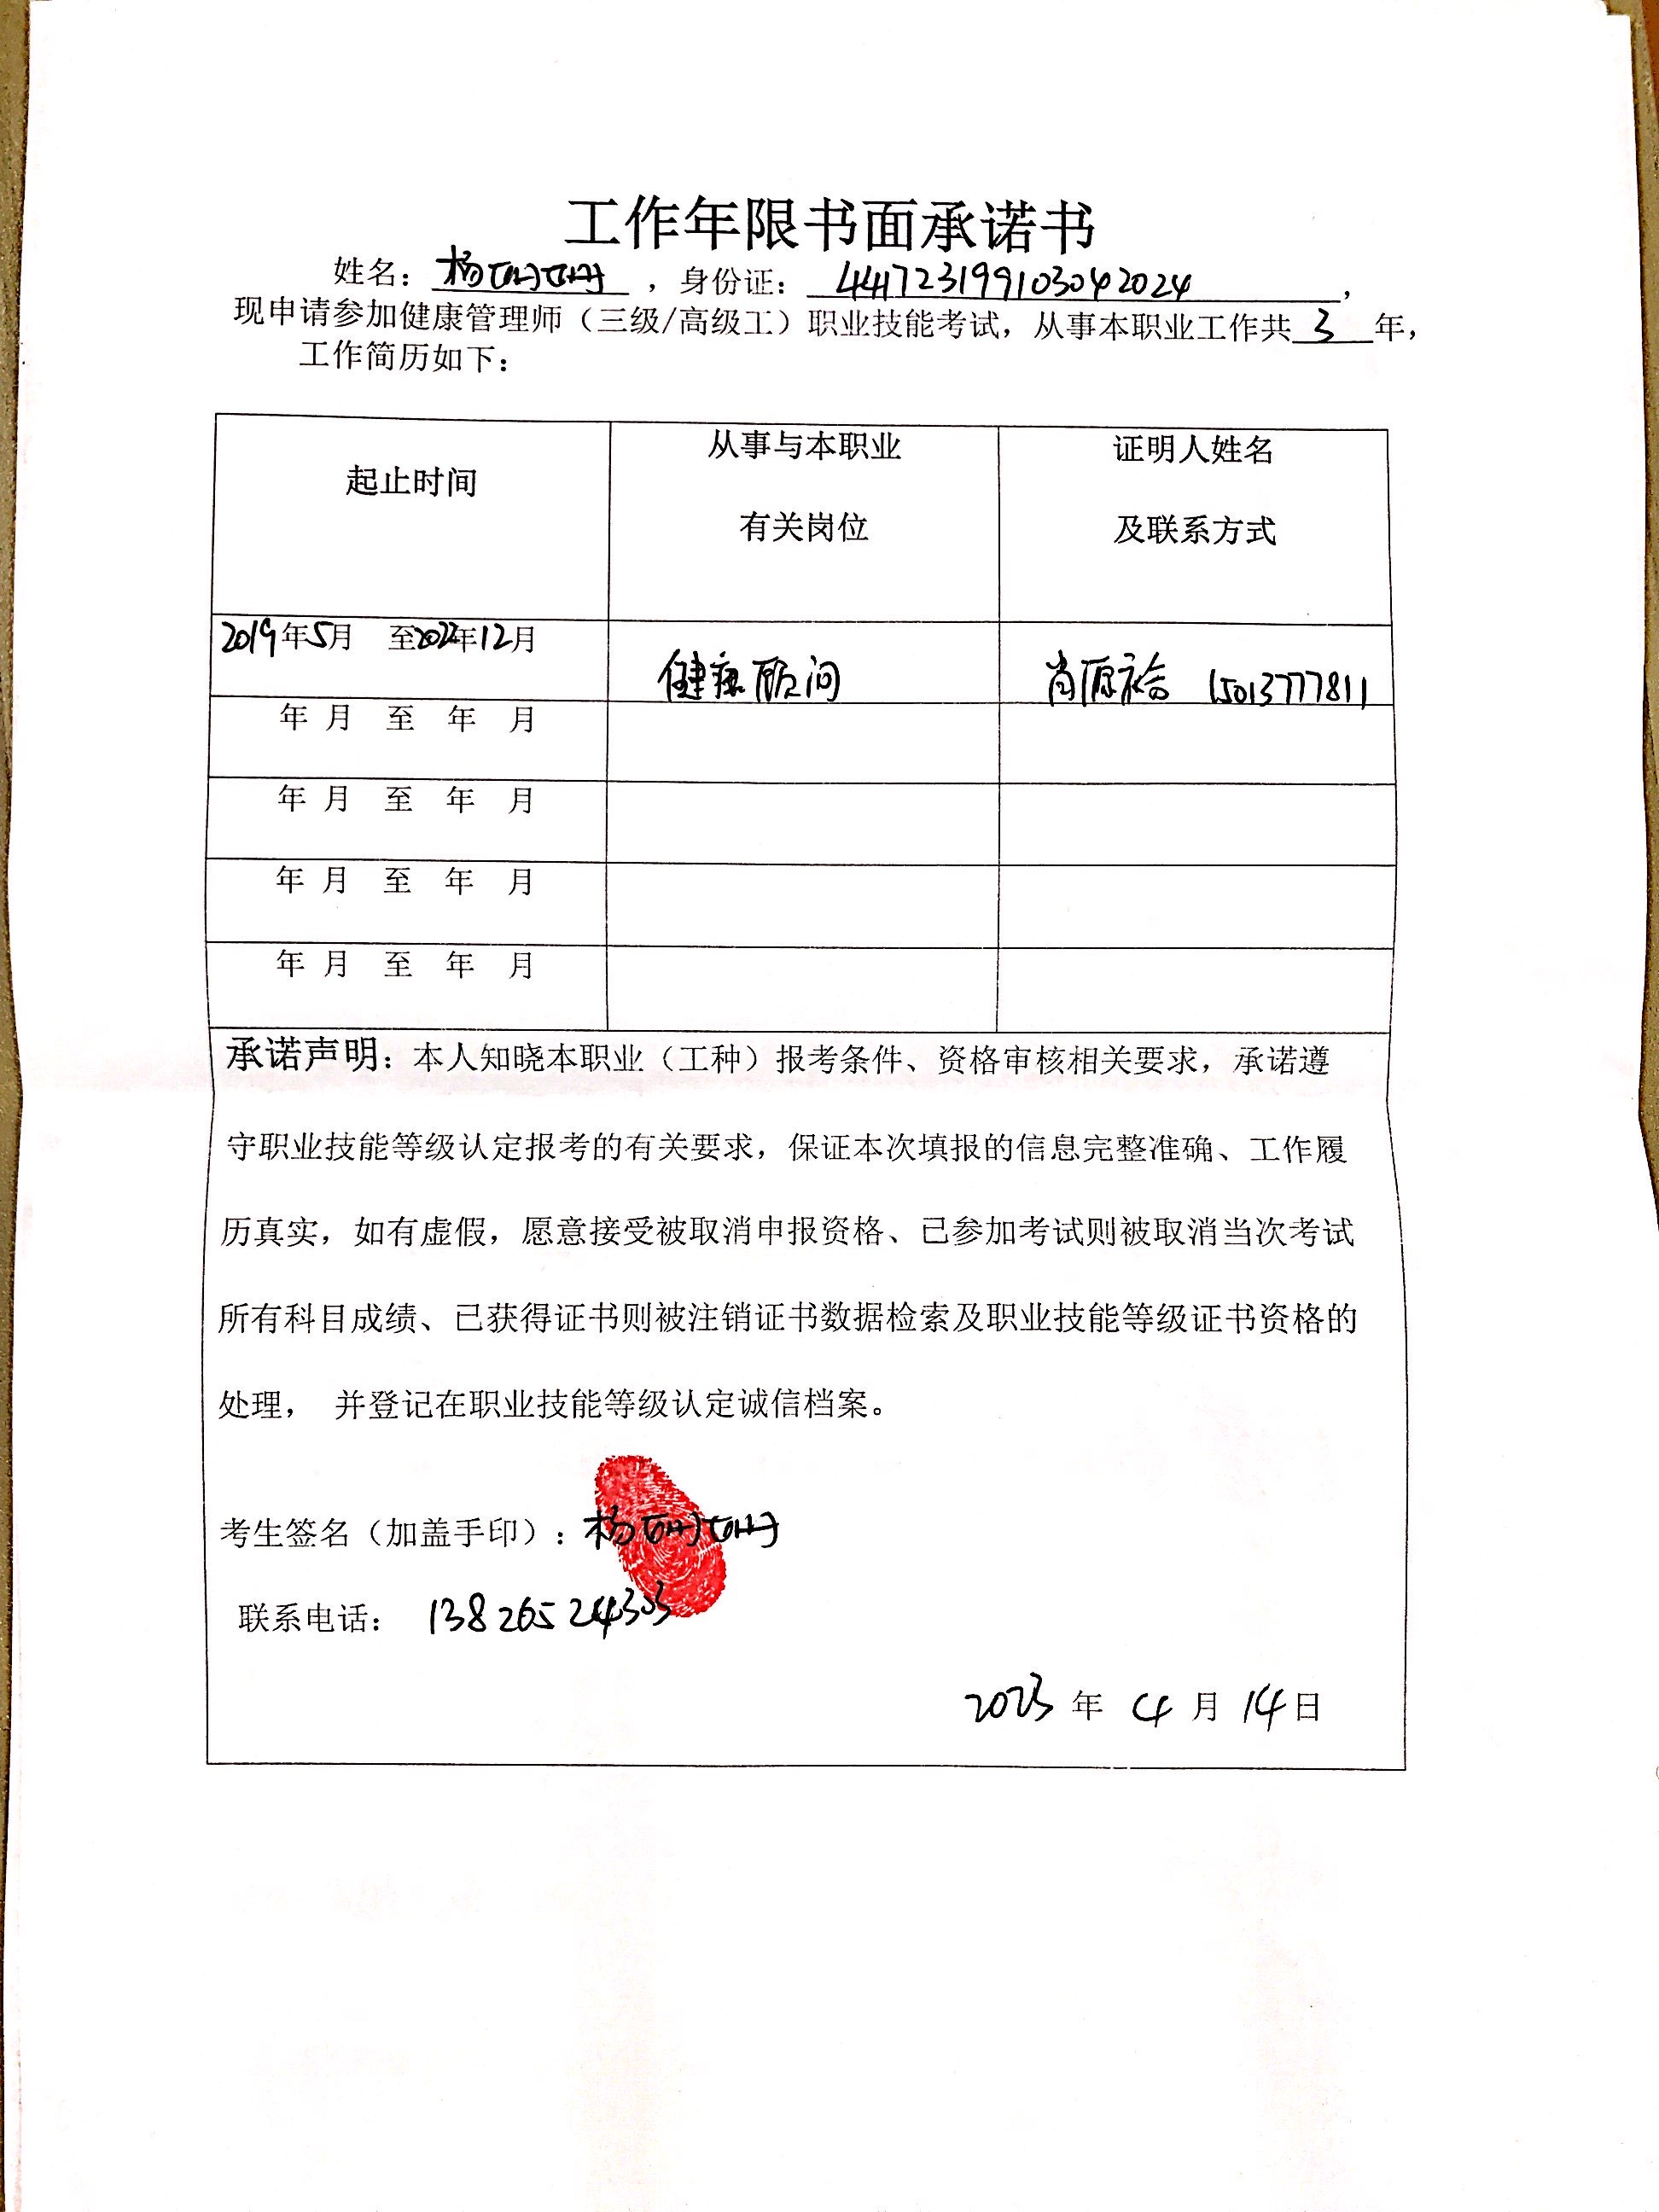 工作年限书面承诺书
姓名：杨珊珊，身份证：441723199103042024，
现申请参加健康管理师（三级/高级工）职业技能考试，从事本职业工作共3年，
工作简历如下：
起止时间
从事与本职业
有关岗位
证明人姓名
及联系方式
2019年5月 至2022年12月
健康顾问
肖源 15013777811
年 月 至 年 月
年 月 至 年 月
年 月 至 年 月
年 月 至 年 月
承诺声明：本人知晓本职业（工种）报考条件、资格审核相关要求，承诺遵
守职业技能等级认定报考的有关要求，保证本次填报的信息完整准确、工作履
历真实，如有虚假，愿意接受被取消申报资格、已参加考试则被取消当次考试
所有科目成绩、已获得证书则被注销证书数据检索及职业技能等级证书资格的
处理， 并登记在职业技能等级认定诚信档案。
考生签名（加盖手印）：杨珊珊
联系电话： 13826524303
2023 年 4 月 14日